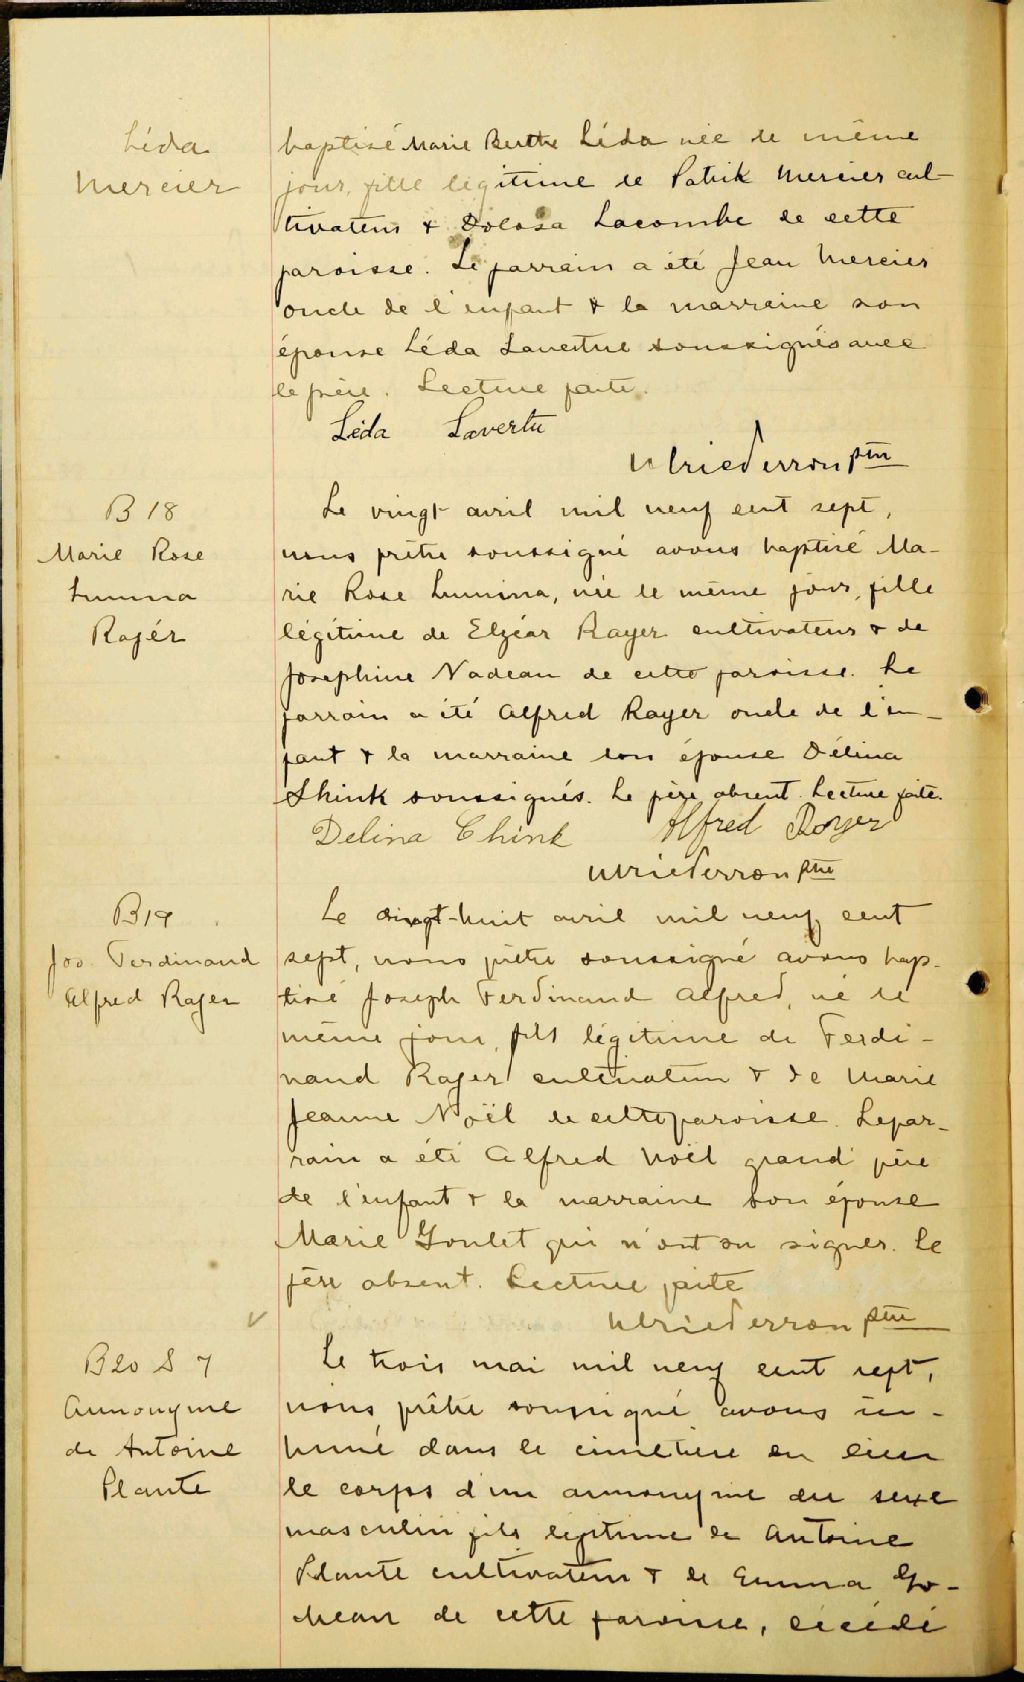 Léda
Mercier
baptisé Marie Berthe Léda née le même
jour, fille légitime de Patrik Mercier cul-
tivateur & Dolosa Lacombe de cette
paroisse. Le parrain a été Jean Mercier
oncle de l'enfant & la marraine son
épouse Léda Lavertue soussignés avec
le père. Lecture faite.
Léda Lavertu
Ulric Perron ptre
B 18
Marie Rose
Lumina
Rajér
Le vingt avril mil neuf cent sept,
nous prêtre soussigné avons baptisé Ma-
rie Rose Lumina, née le même jour, fille
légitime de Elzéar Rayer cultivateur & de
Josephine Nadeau de cette paroisse. Le
parrain a été Alfred Rayer oncle de l'en-
fant & la marraine son épouse Délina
Shink soussignés. Le père absent. Lecture faite.
Delina Chink Alfred Royer
Ulric Perron ptre
B19
Jos Ferdinand
Alfred Rajer
Le vingt-huit avril mil neuf cent
sept, nous prêtre soussigné avons bap-
tisé Joseph Ferdinand Alfred, né le
même jour, fils légitime de Ferdi-
nand Rajer cultivateur & de Marie
Jeanne Noël de cette paroisse. Le par-
rain a été Alfred Noël grand père
de l'enfant & la marraine son épouse
Marie Goulet qui n'ont su signer. Le
père absent. Lecture faite
Ulric Perron ptre
B20 S 7
Annonyme
de Antoine
Plante
Le trois mai mil neuf cent sept,
nous prêtre soussigné avons in-
humé dans le cimetière du lieu
le corps d'un annonyme du sexe
masculin fils légitime de Antoine
Plante cultivateur & de Emma Go-
cette paroisse, décédé